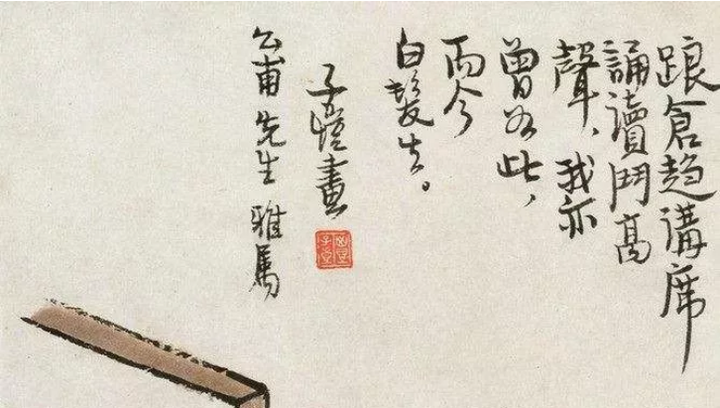 踉倉趋講席
誦讀鬥高
聲，我亦
曾如此，
而今
白髮生。
子愷畫
公甫先生雅屬